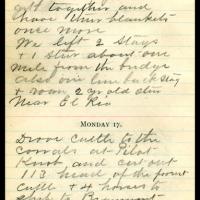 get together and
have their blankets
once more
We left 2 stags
+ 1 steer about one
mile from the bridge
also one line back stag
+ roan 2 yr old steer
Near El Rio
MONDAY 17.
Drove cattle to the
corrals at Pilot
Knob and cut out
113 head of the forest
cattle + 4 horses to
ship to Beaumont